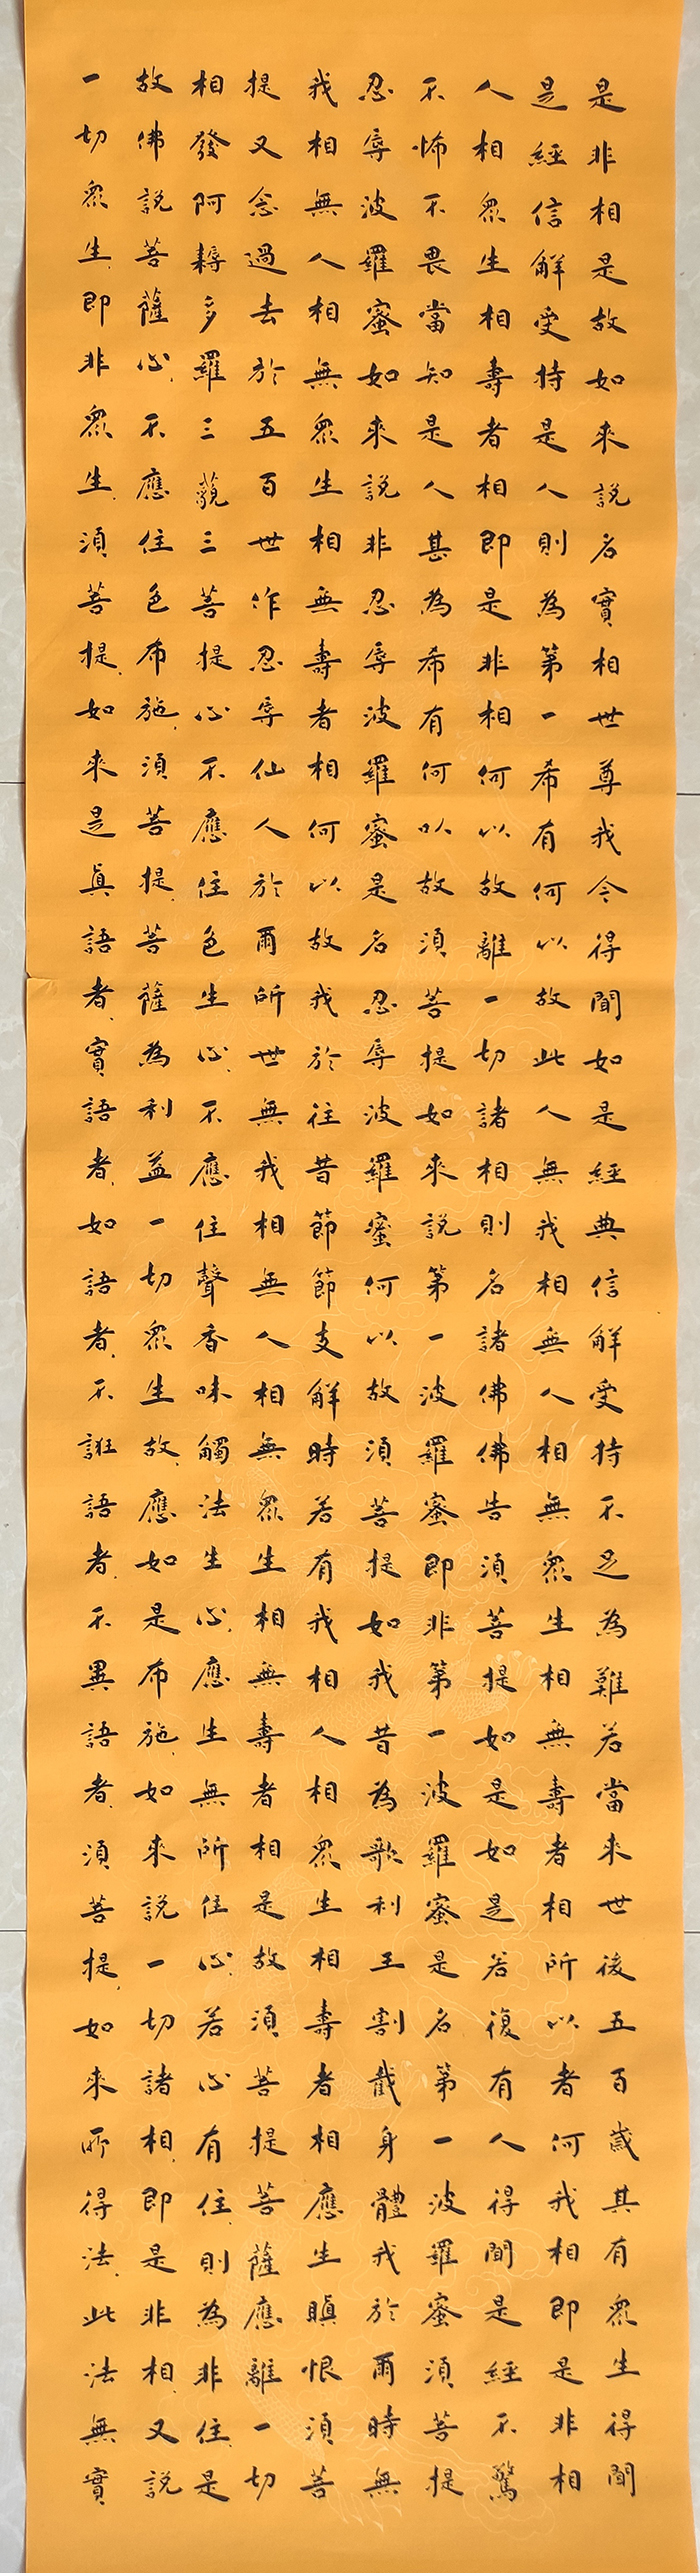 是非相是故如來說名實相世尊我今得聞如是經典信解受持不足為難若當來世後五百歲其有眾生得聞
是經信解受持是人則為第一希有何以故此人無我相無人相無眾生相無壽者相所以者何我相即是非相
人相眾生相壽者相即是非相何以故離一切諸相則名諸佛佛告須菩提如是如是若復有人得聞是經不驚
不怖不畏當知是人甚為希有何以故須菩提如來說第一波羅蜜即非第一波羅蜜是名第一波羅蜜須菩提
忍辱波羅蜜如來說非忍辱波羅蜜是名忍辱波羅蜜何以故須菩提如我昔為歌利王割截身體我於爾時無
我相無人相無眾生相無壽者相何以故我於往昔節節支解時若有我相人相眾生相壽者相應生瞋恨須菩
提又念過去於五百世作忍辱仙人於爾所世無我相無人相無眾生相無壽者相是故須菩提菩薩應離一切
相發阿耨多羅三藐三菩提心不應住色生心不應住聲香味觸法生心應生無所住心若心有住則為非住是
故佛說菩薩心不應住色布施須菩提菩薩為利益一切眾生故應如是布施如來說一切諸相即是非相又說
一切眾生即非眾生須菩提如來是真語者實語者如語者不誑語者不異語者須菩提如來所得法此法無實